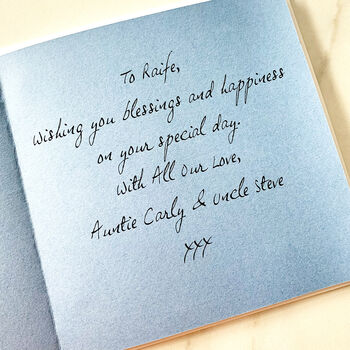 To Raife,
Wishing you blessings and happiness
on your special day.
With All Our Love,
Auntie Carly & Uncle Steve
xxx